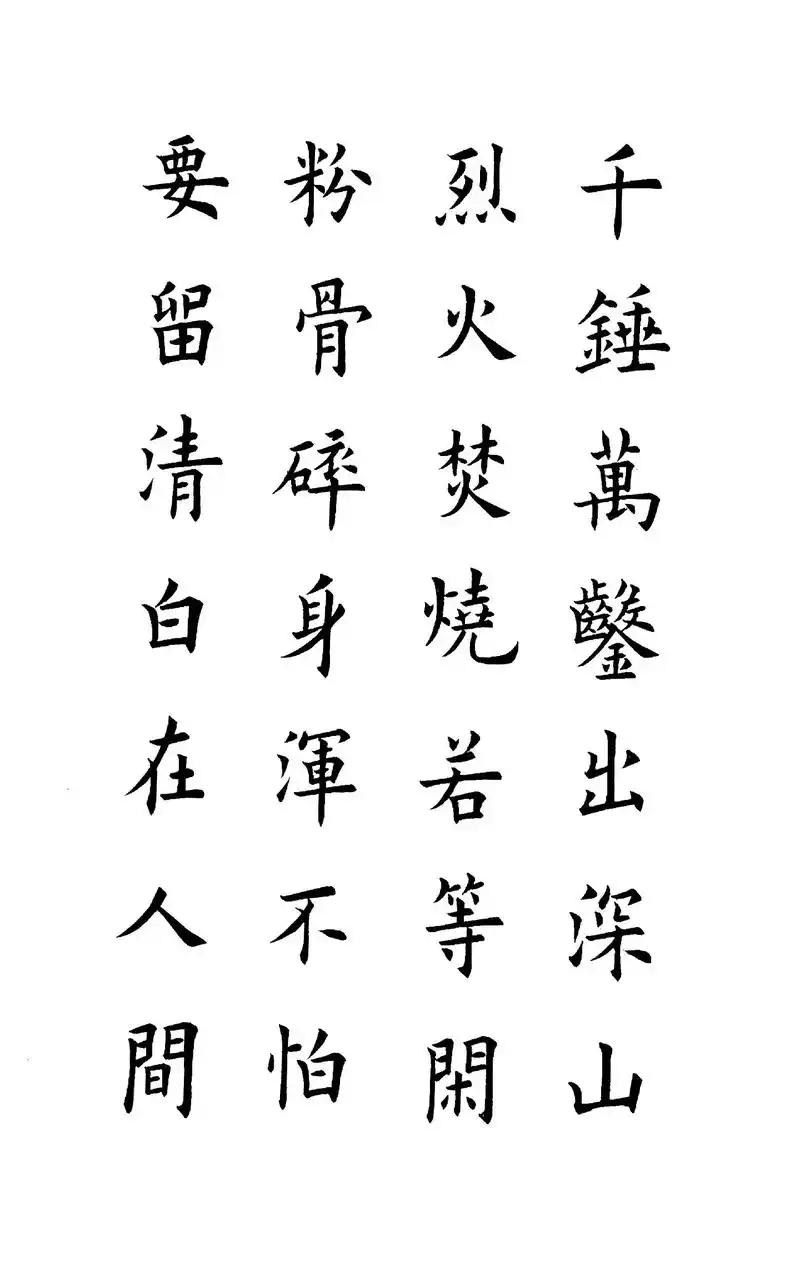 千錘萬鑿出深山
烈火焚燒若等閑
粉骨碎身渾不怕
要留清白在人間